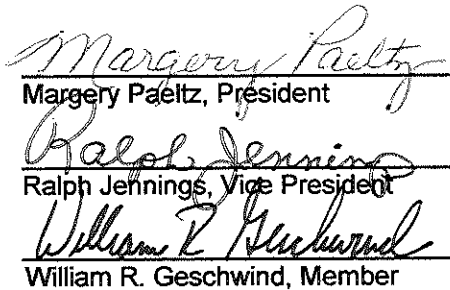 Margery Paeltz
Margery Paeltz, President
Ralph Jennings
Ralph Jennings, Vice President
William R Geschwind
William R. Geschwind, Member